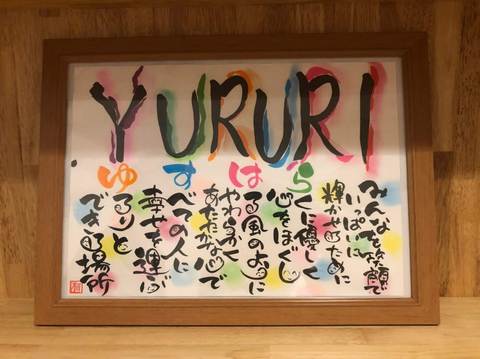 YURURI
ゆすはら
みんなを笑顔で
いっぱいに
輝かせるために
くに優しく
心をほぐし
る風のように
やわらかく
あたたかな心で
べての人に
幸せを運び
るりと
できる場所